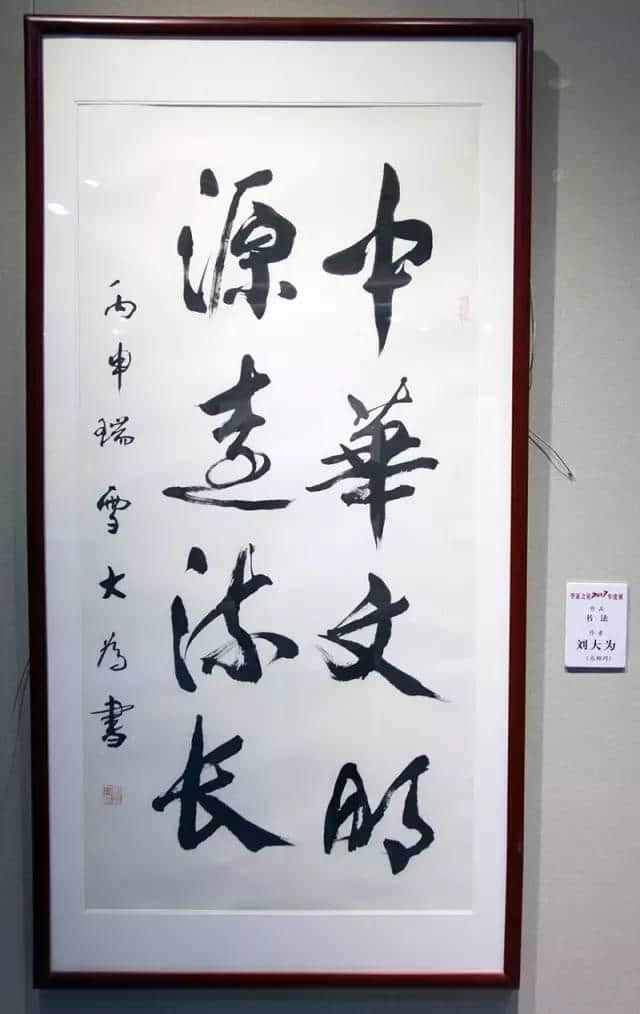 中華文明
源遠流长
丙申瑞雪大为書
2017年度展
作品
书法
作者
刘大为